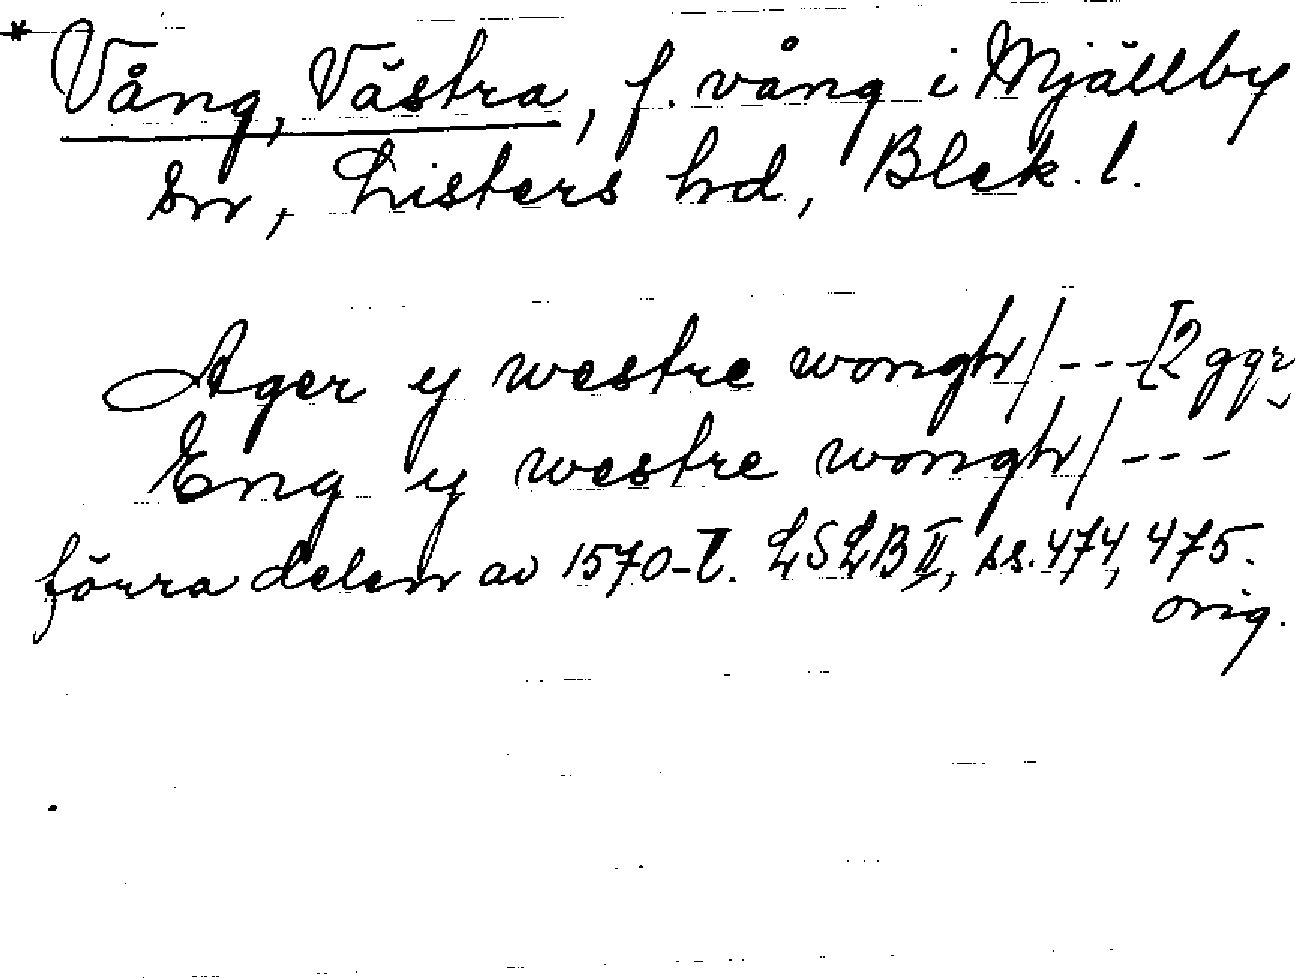 * Vång, Västra, f. vång i Mjällby
sn, Listers hd, Blek. l.
Ager y westre wongh / --- [2 ggr
Eng y westre wongh / ---
förra delen av 1570-t. LSLB II, ss. 474, 475.
orig.